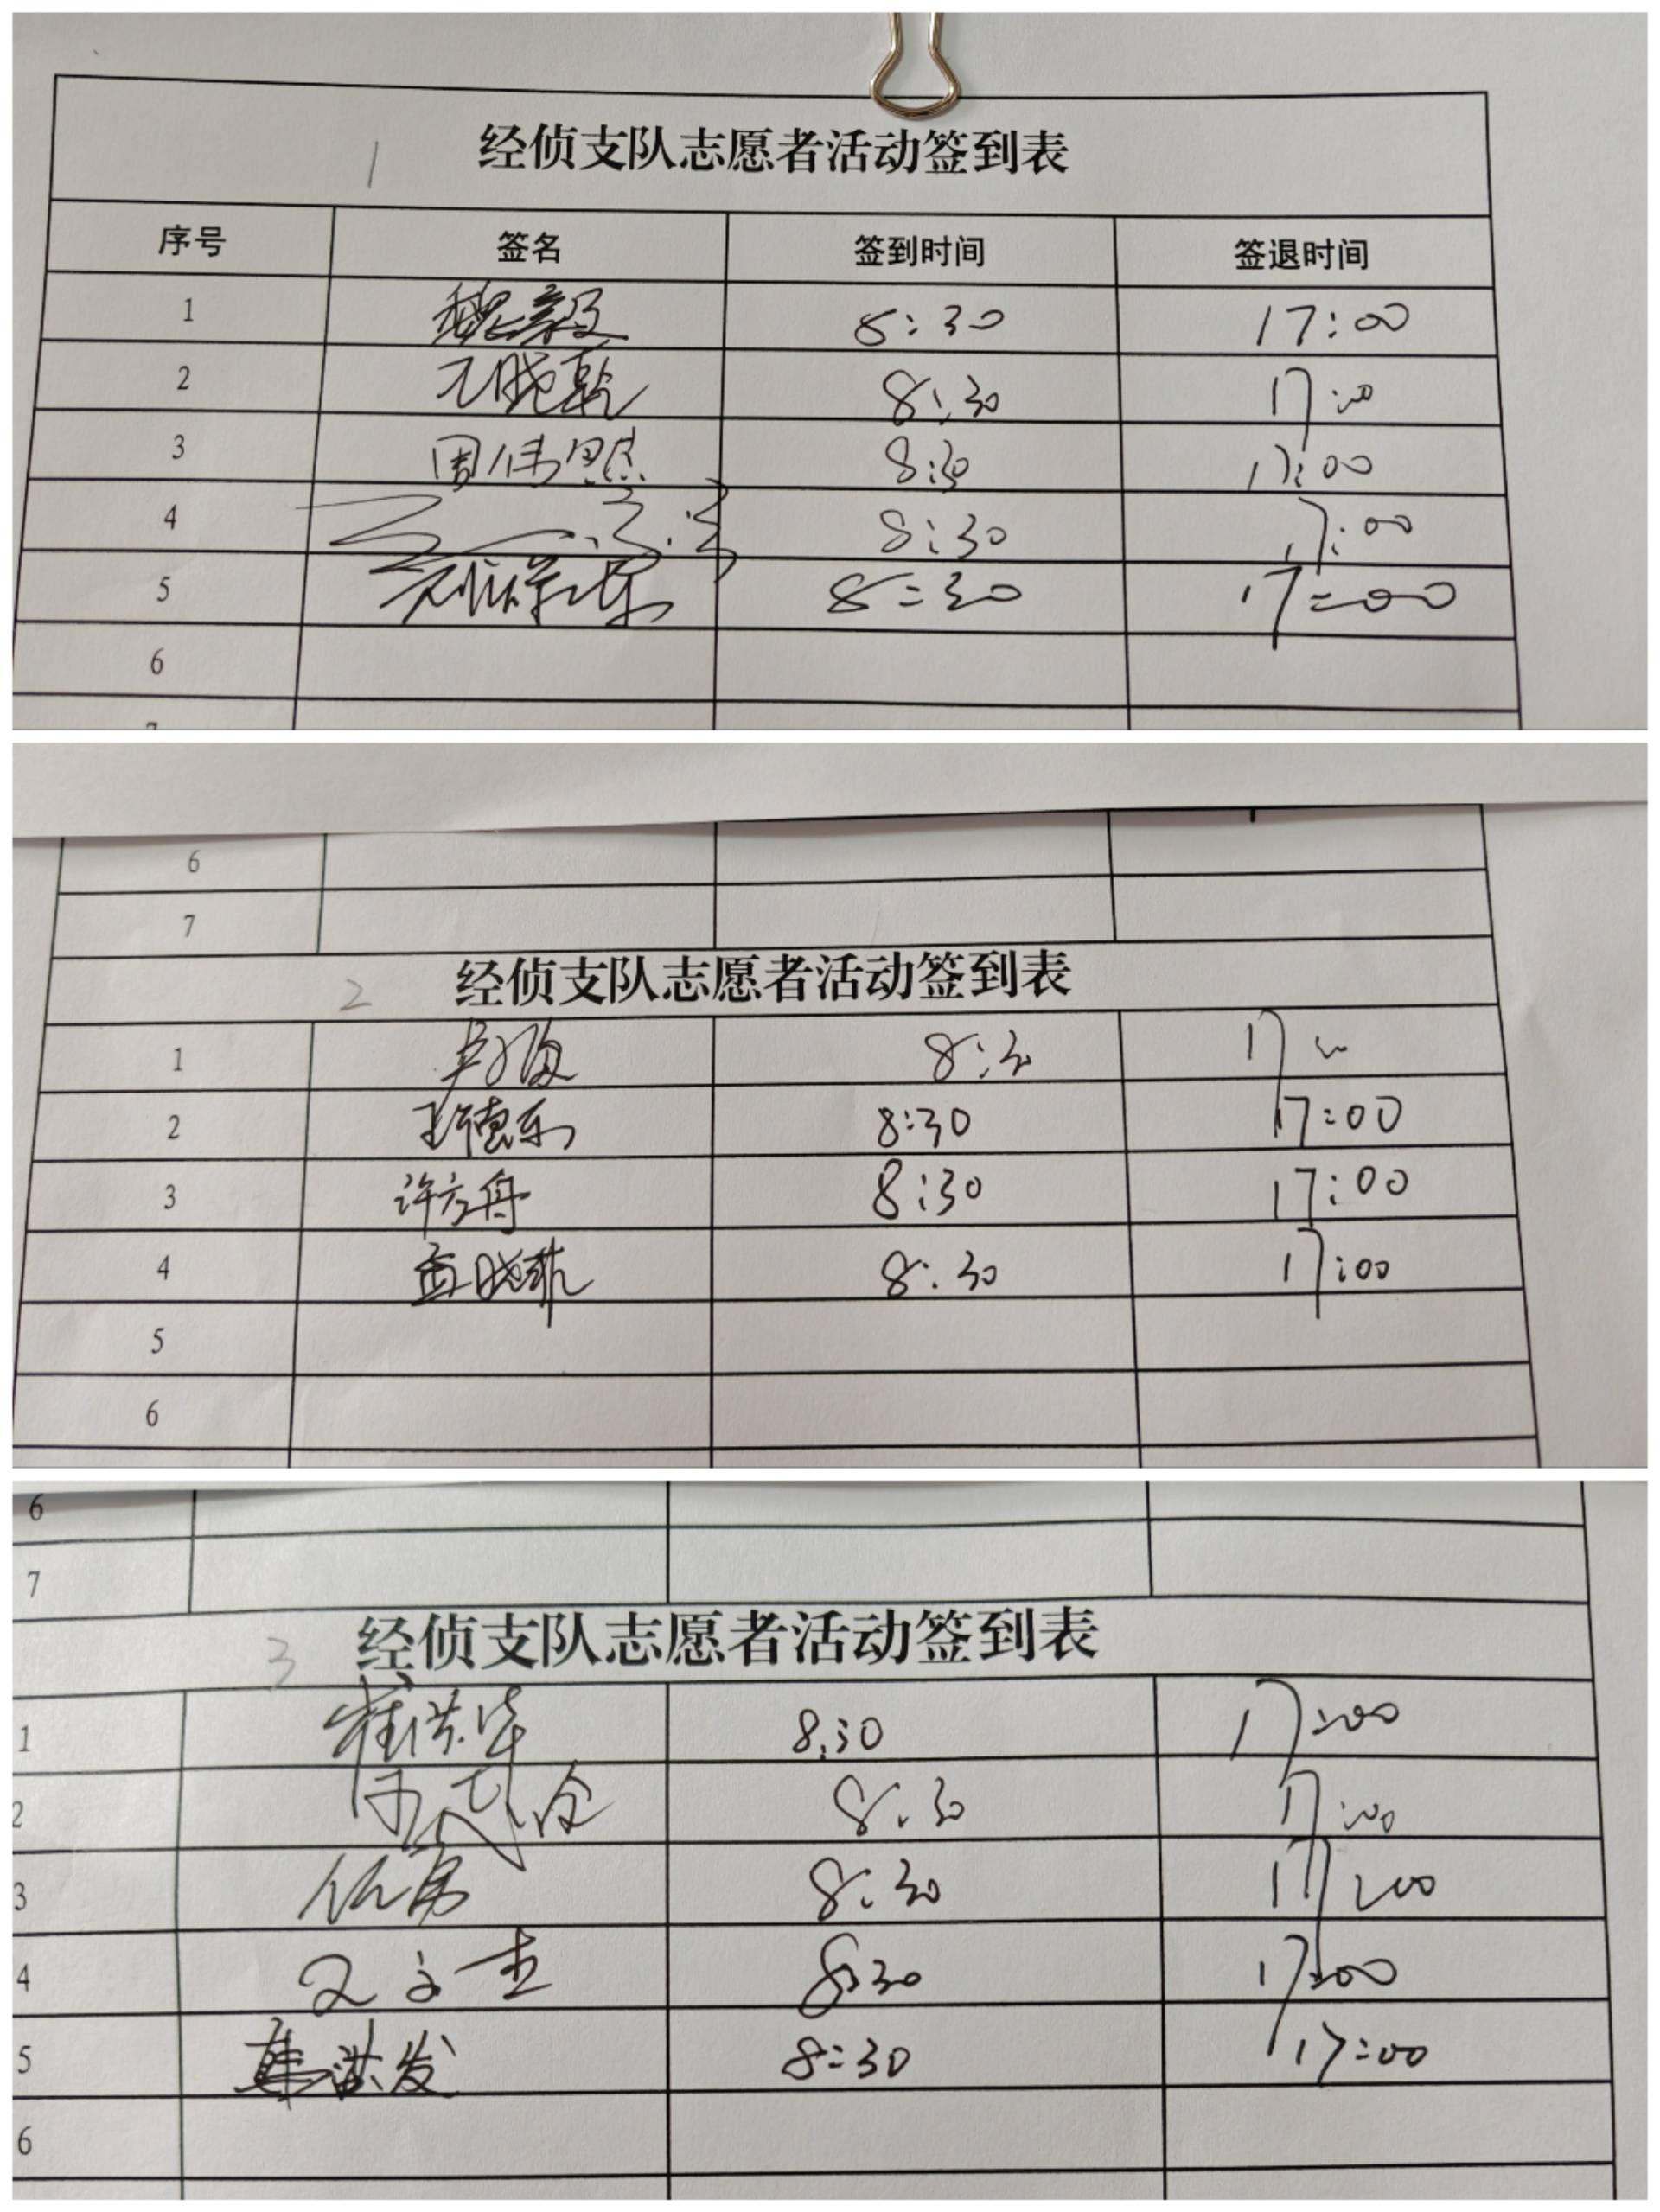 1
经侦支队志愿者活动签到表
序号 签名 签到时间 签退时间
1 魏毅 8:30 17:00
2 晓乾 8:30 17:00
3 周伟 8:30 17:00
4 8:30 17:00
5 8=30 17=00
6
6
7
2 经侦支队志愿者活动签到表
1 8:30 17 00
2 王德东 8:30 17:00
3 许方舟 8:30 17:00
4 孟晓菲 8:30 17:00
5
6
6
7
3 经侦支队志愿者活动签到表
1 崔洪华 8:30 17:00
2 8:30 17:00
3 8:30 17:00
4 8:30 17:00
5 洪发 8:30 17:00
6